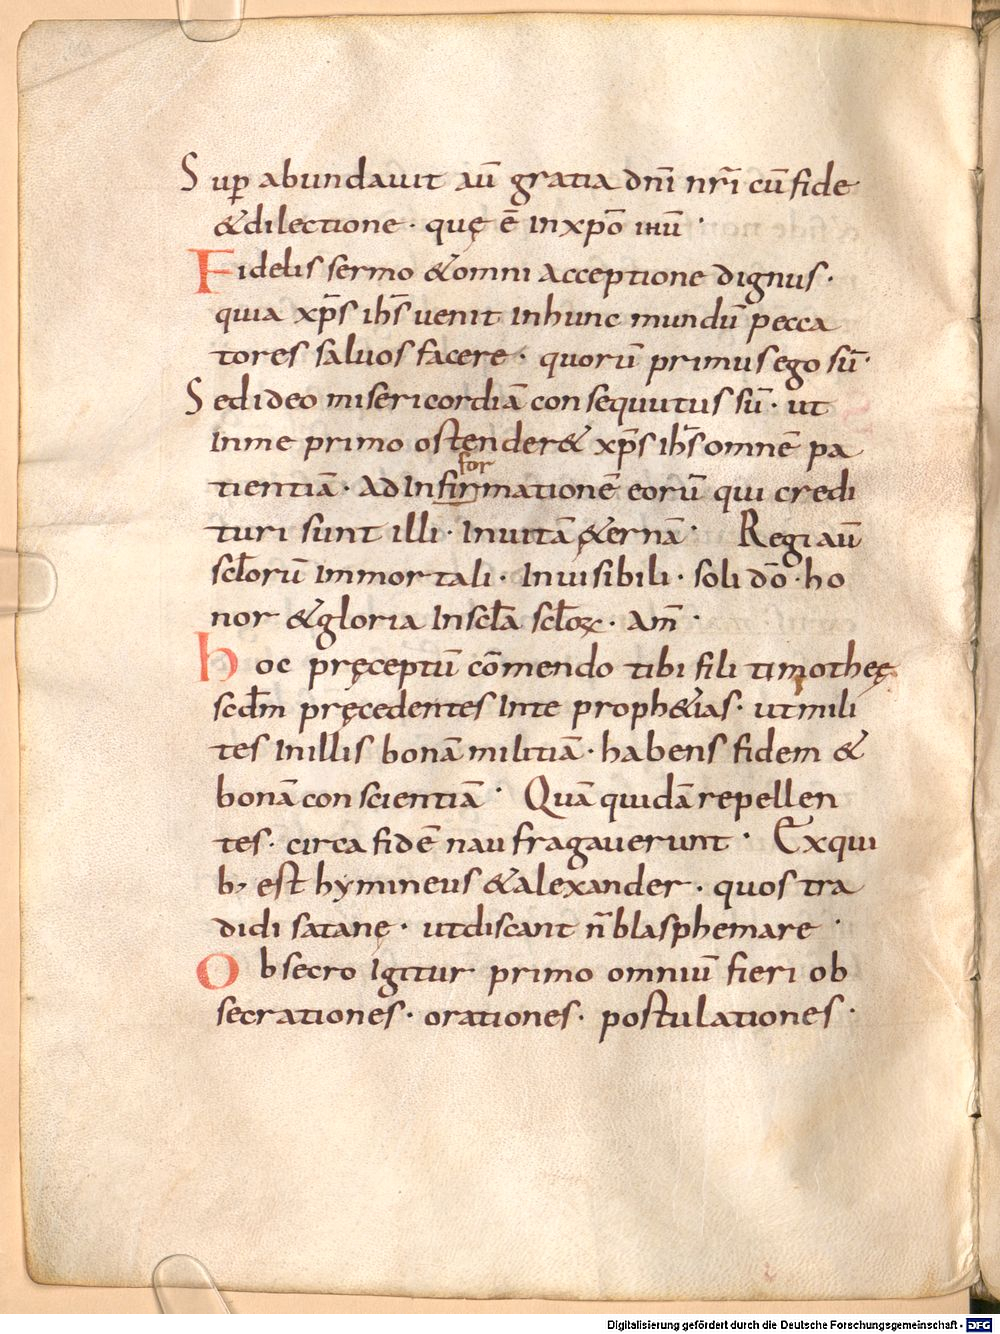 Suꝑ abundauit aū gratia dn̄i nr̄i cū fide
&dilectione · quę ē inxp̄o ihū ·
Fidelis sermo &omni acceptione dignus ·
quia xp̄s ih̄s uenit inhunc mundū pecca
tores saluos facere · quorū primus ego sū ·
Sedideo misericordiā consequutus sū · ut
inme primo ostender& xp̄s ih̄s omnē pa
for
tientiā · adinfirmationē eorū qui credi
turi sunt illi · inuitā &ernā · Regi aū
scl̄orū immortali · inuisibili · soli dō · ho
nor &gloria inscl̄a scl̄oꝝ · am̄ ·
hoc pręceptū cōmendo tibi fili timotheę
scd̄m pręcedentes inte proph&ias · ut mili
tes inillis bonā militiā · habens fidem &
bonā conscientiā · Quā quidā repellen
tes · circa fidē naufragauerunt · Exqui
b; est hymineus &alexander · quos tra
didi satanę · utdiscant n̄ blasphemare ·
Obsecro igitur primo omniū fieri ob
secrationes · orationes · postulationes ·
Digitalisierung gefördert durch die Deutsche Forschungsgemeinschaft - DFG